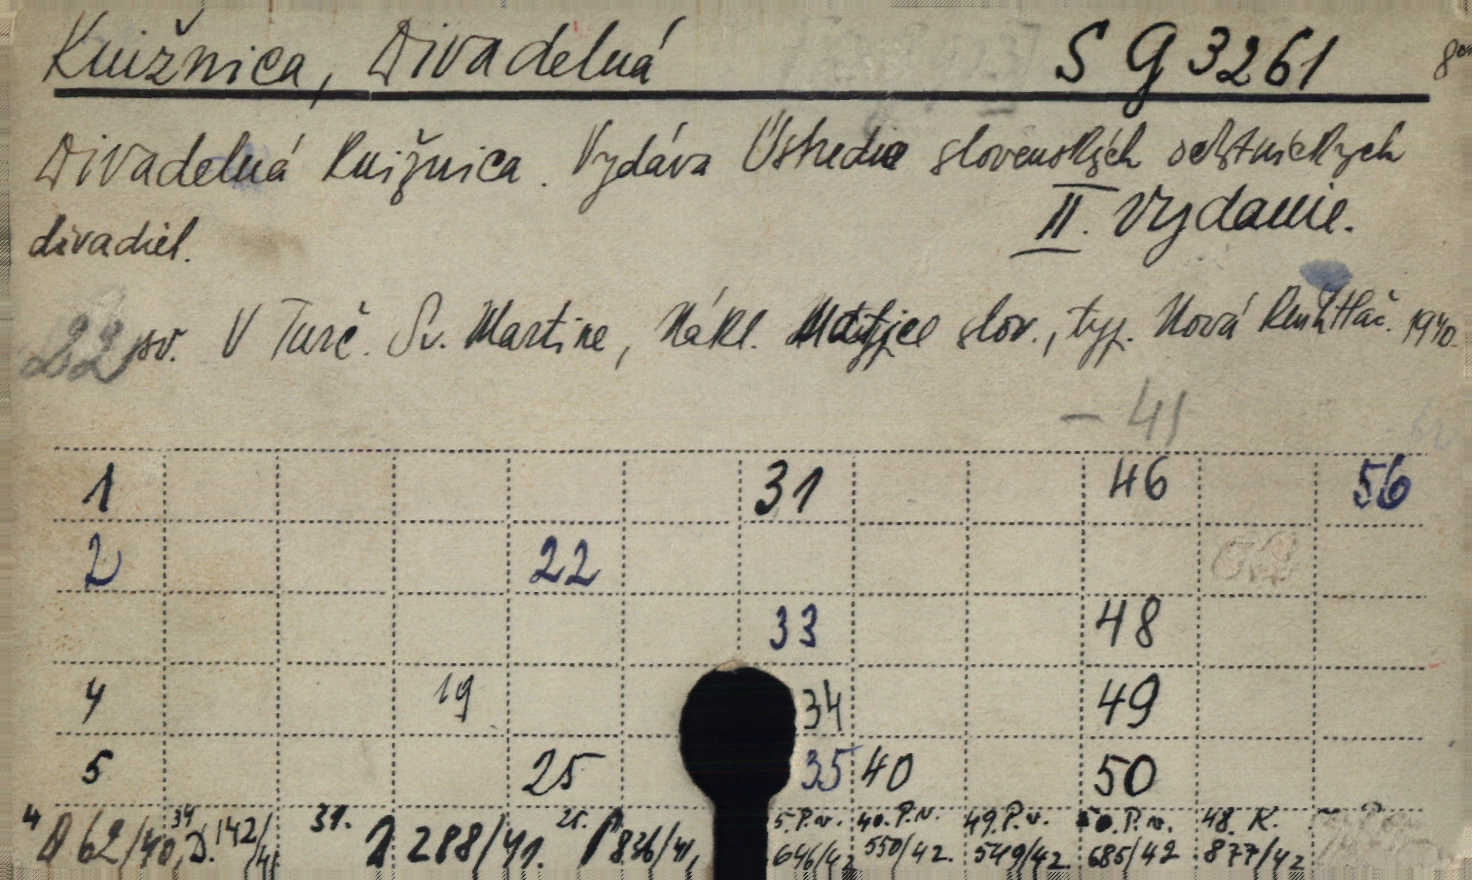 Knižnica, Divadelná SG 3261 8°
Divadelná knižnica. Vydáva Ústredie slovenských ochotníckych
divadiel. II. vydanie.
22 sv. V Turč. Sv. Martine, Nákl. Matice slov., typ. Nová 1940
- 41
1 31 46 56
2 22
33 48
4 19 34 49
5 25 35 40 50
4 34 31. 25. 5.P.v. 40.P.v. 49.P.v. 50.P.v. 48. K.
D 62/40, D.142/41 D 288/41. P 836/41, 646/42 550/42. 549/42 685/42 877/42